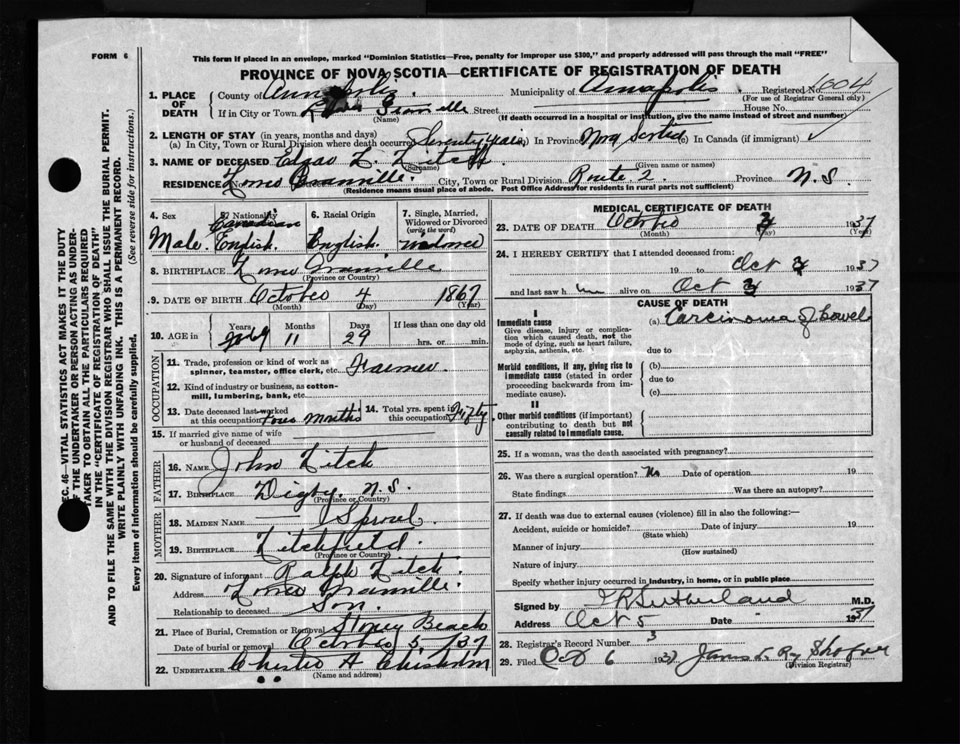 FORM 6
This form if placed in an envelope, marked "Dominion Statistics—Free, penalty for improper use $300," and properly addressed will pass through the mail "FREE"
PROVINCE OF NOVA SCOTIA—CERTIFICATE OF REGISTRATION OF DEATH
1. PLACE OF DEATH
County of Annapolis Municipality of Annapolis Registered No. 1004
(For use of Registrar General only)
If in City or Town Granville Street House No.
(Name) (If death occurred in a hospital or institution, give the name instead of street and number)
2. LENGTH OF STAY (in years, months and days)
(a) In City, Town or Rural Division where death occurred Seventy years In Province Nova Scotia (c) In Canada (if immigrant)
3. NAME OF DECEASED Edgar L. Litch
(Surname) (Given name or names)
RESIDENCE No. Lower Granville City, Town or Rural Division Route 2 Province N.S.
(Residence means usual place of abode. Post Office Address for residents in rural parts not sufficient)
4. Sex Male.
5. Nationality Canadian English.
6. Racial Origin English.
7. Single, Married, Widowed or Divorced (write the word) Widower
8. BIRTHPLACE Lower Granville
(Province or Country)
9. DATE OF BIRTH October 4 1867
(Month) (Day) (Year)
10. AGE in Years 69 Months 11 Days 29 If less than one day old hrs. or min.
OCCUPATION
11. Trade, profession or kind of work as spinner, teamster, office clerk, etc. Farmer.
12. Kind of industry or business, as cotton-mill, lumbering, bank, etc.
13. Date deceased last worked at this occupation Four months 14. Total yrs. spent in this occupation Fifty
15. If married give name of wife or husband of deceased
FATHER
16. NAME John Litch
17. BIRTHPLACE Digby. N.S.
(Province or Country)
MOTHER
18. MAIDEN NAME Sproul.
19. BIRTHPLACE Litchfield.
(Province or Country)
20. Signature of informant Ralph Litch.
Address Lower Granville.
Relationship to deceased Son.
21. Place of Burial, Cremation or Removal Stoney Beach
Date of burial or removal October 5 /37
22. UNDERTAKER Chester A Chisholm
(Name and address)
MEDICAL CERTIFICATE OF DEATH
23. DATE OF DEATH October 3 1937
(Month) (Day) (Year)
24. I HEREBY CERTIFY that I attended deceased from:
19 to Oct 3 1937
and last saw him alive on Oct 3 1937
CAUSE OF DEATH
I
Immediate cause (a) Carcinoma of bowel
Give disease, injury or complication which caused death, not the mode of dying, such as heart failure, asphyxia, asthenia, etc. due to
Morbid conditions, if any, giving rise to immediate cause (stated in order proceeding backwards from immediate cause). (b)
due to
(c)
II
Other morbid conditions (if important) contributing to death but not causally related to immediate cause.
25. If a woman, was the death associated with pregnancy?
26. Was there a surgical operation? No Date of operation 19
State findings Was there an autopsy?
27. If death was due to external causes (violence) fill in also the following:—
Accident, suicide or homicide? Date of injury 19
(State which)
Manner of injury
(How sustained)
Nature of injury
Specify whether injury occurred in industry, in home, or in public place
Signed by Sutherland M.D.
Address Oct 5 Date 1937
28. Registrar's Record Number 3
29. Filed Oct 6 1937 James
(Division Registrar)
SEC. 46—VITAL STATISTICS ACT MAKES IT THE DUTY
OF THE UNDERTAKER OR PERSON ACTING AS UNDER-
TAKER TO OBTAIN ALL THE PARTICULARS REQUIRED
IN THE "CERTIFICATE OF REGISTRATION OF DEATH"
AND TO FILE THE SAME WITH THE DIVISION REGISTRAR WHO SHALL ISSUE THE BURIAL PERMIT.
WRITE PLAINLY WITH UNFADING INK. THIS IS A PERMANENT RECORD.
Every item of information should be carefully supplied. (See reverse side for instructions.)